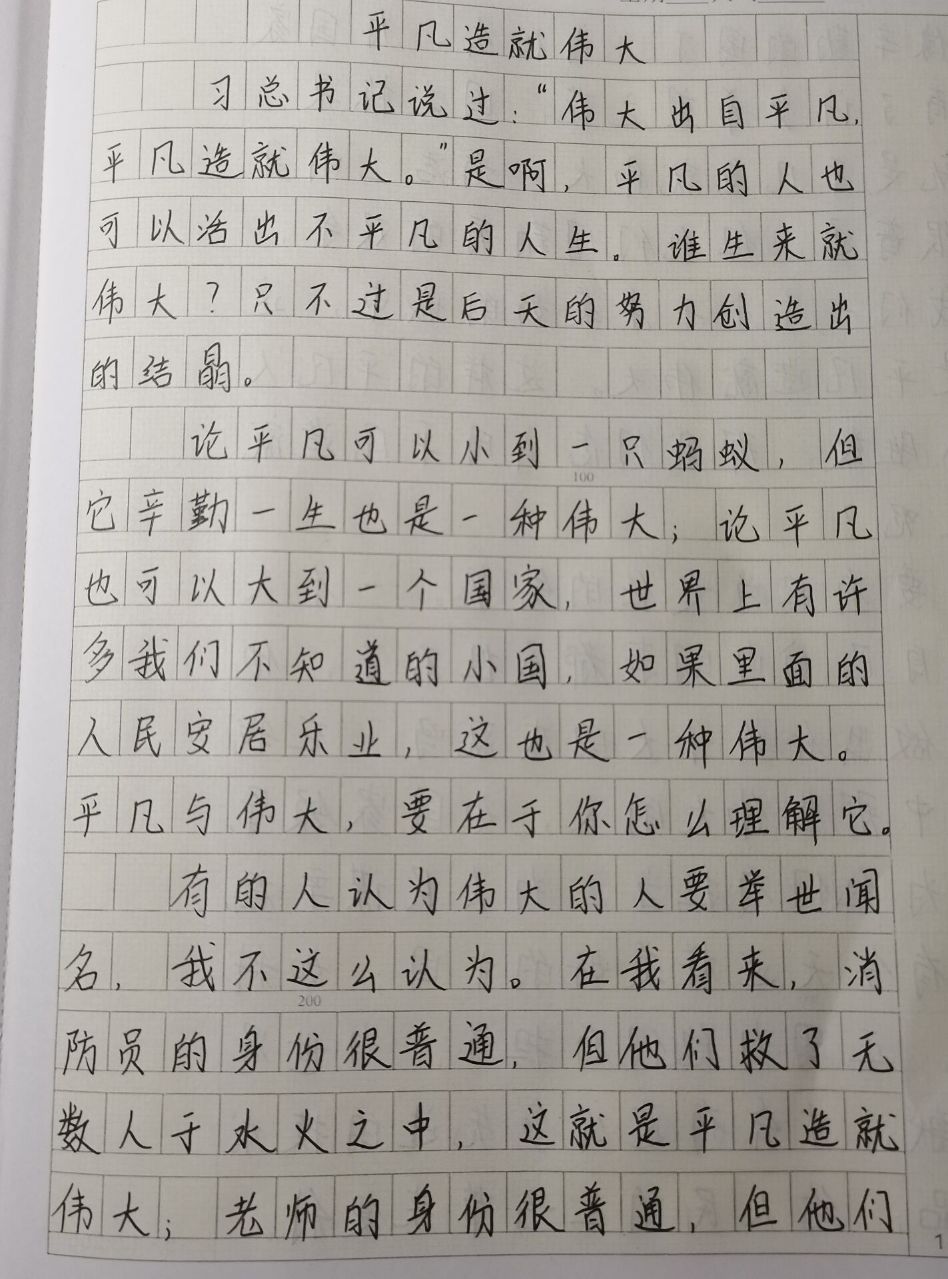 平凡造就伟大
习总书记说过：“伟大出自平凡，
平凡造就伟大。”是啊，平凡的人也
可以活出不平凡的人生。谁生来就
伟大？只不过是后天的努力创造出
的结晶。
论平凡可以小到一只蚂蚁，但
100
它辛勤一生也是一种伟大；论平凡
也可以大到一个国家，世界上有许
多我们不知道的小国，如果里面的
人民安居乐业，这也是一种伟大。
平凡与伟大，要在于你怎么理解它。
有的人认为伟大的人要举世闻
名，我不这么认为。在我看来，消
200
防员的身份很普通，但他们救了无
数人于水火之中，这就是平凡造就
伟大；老师的身份很普通，但他们
1